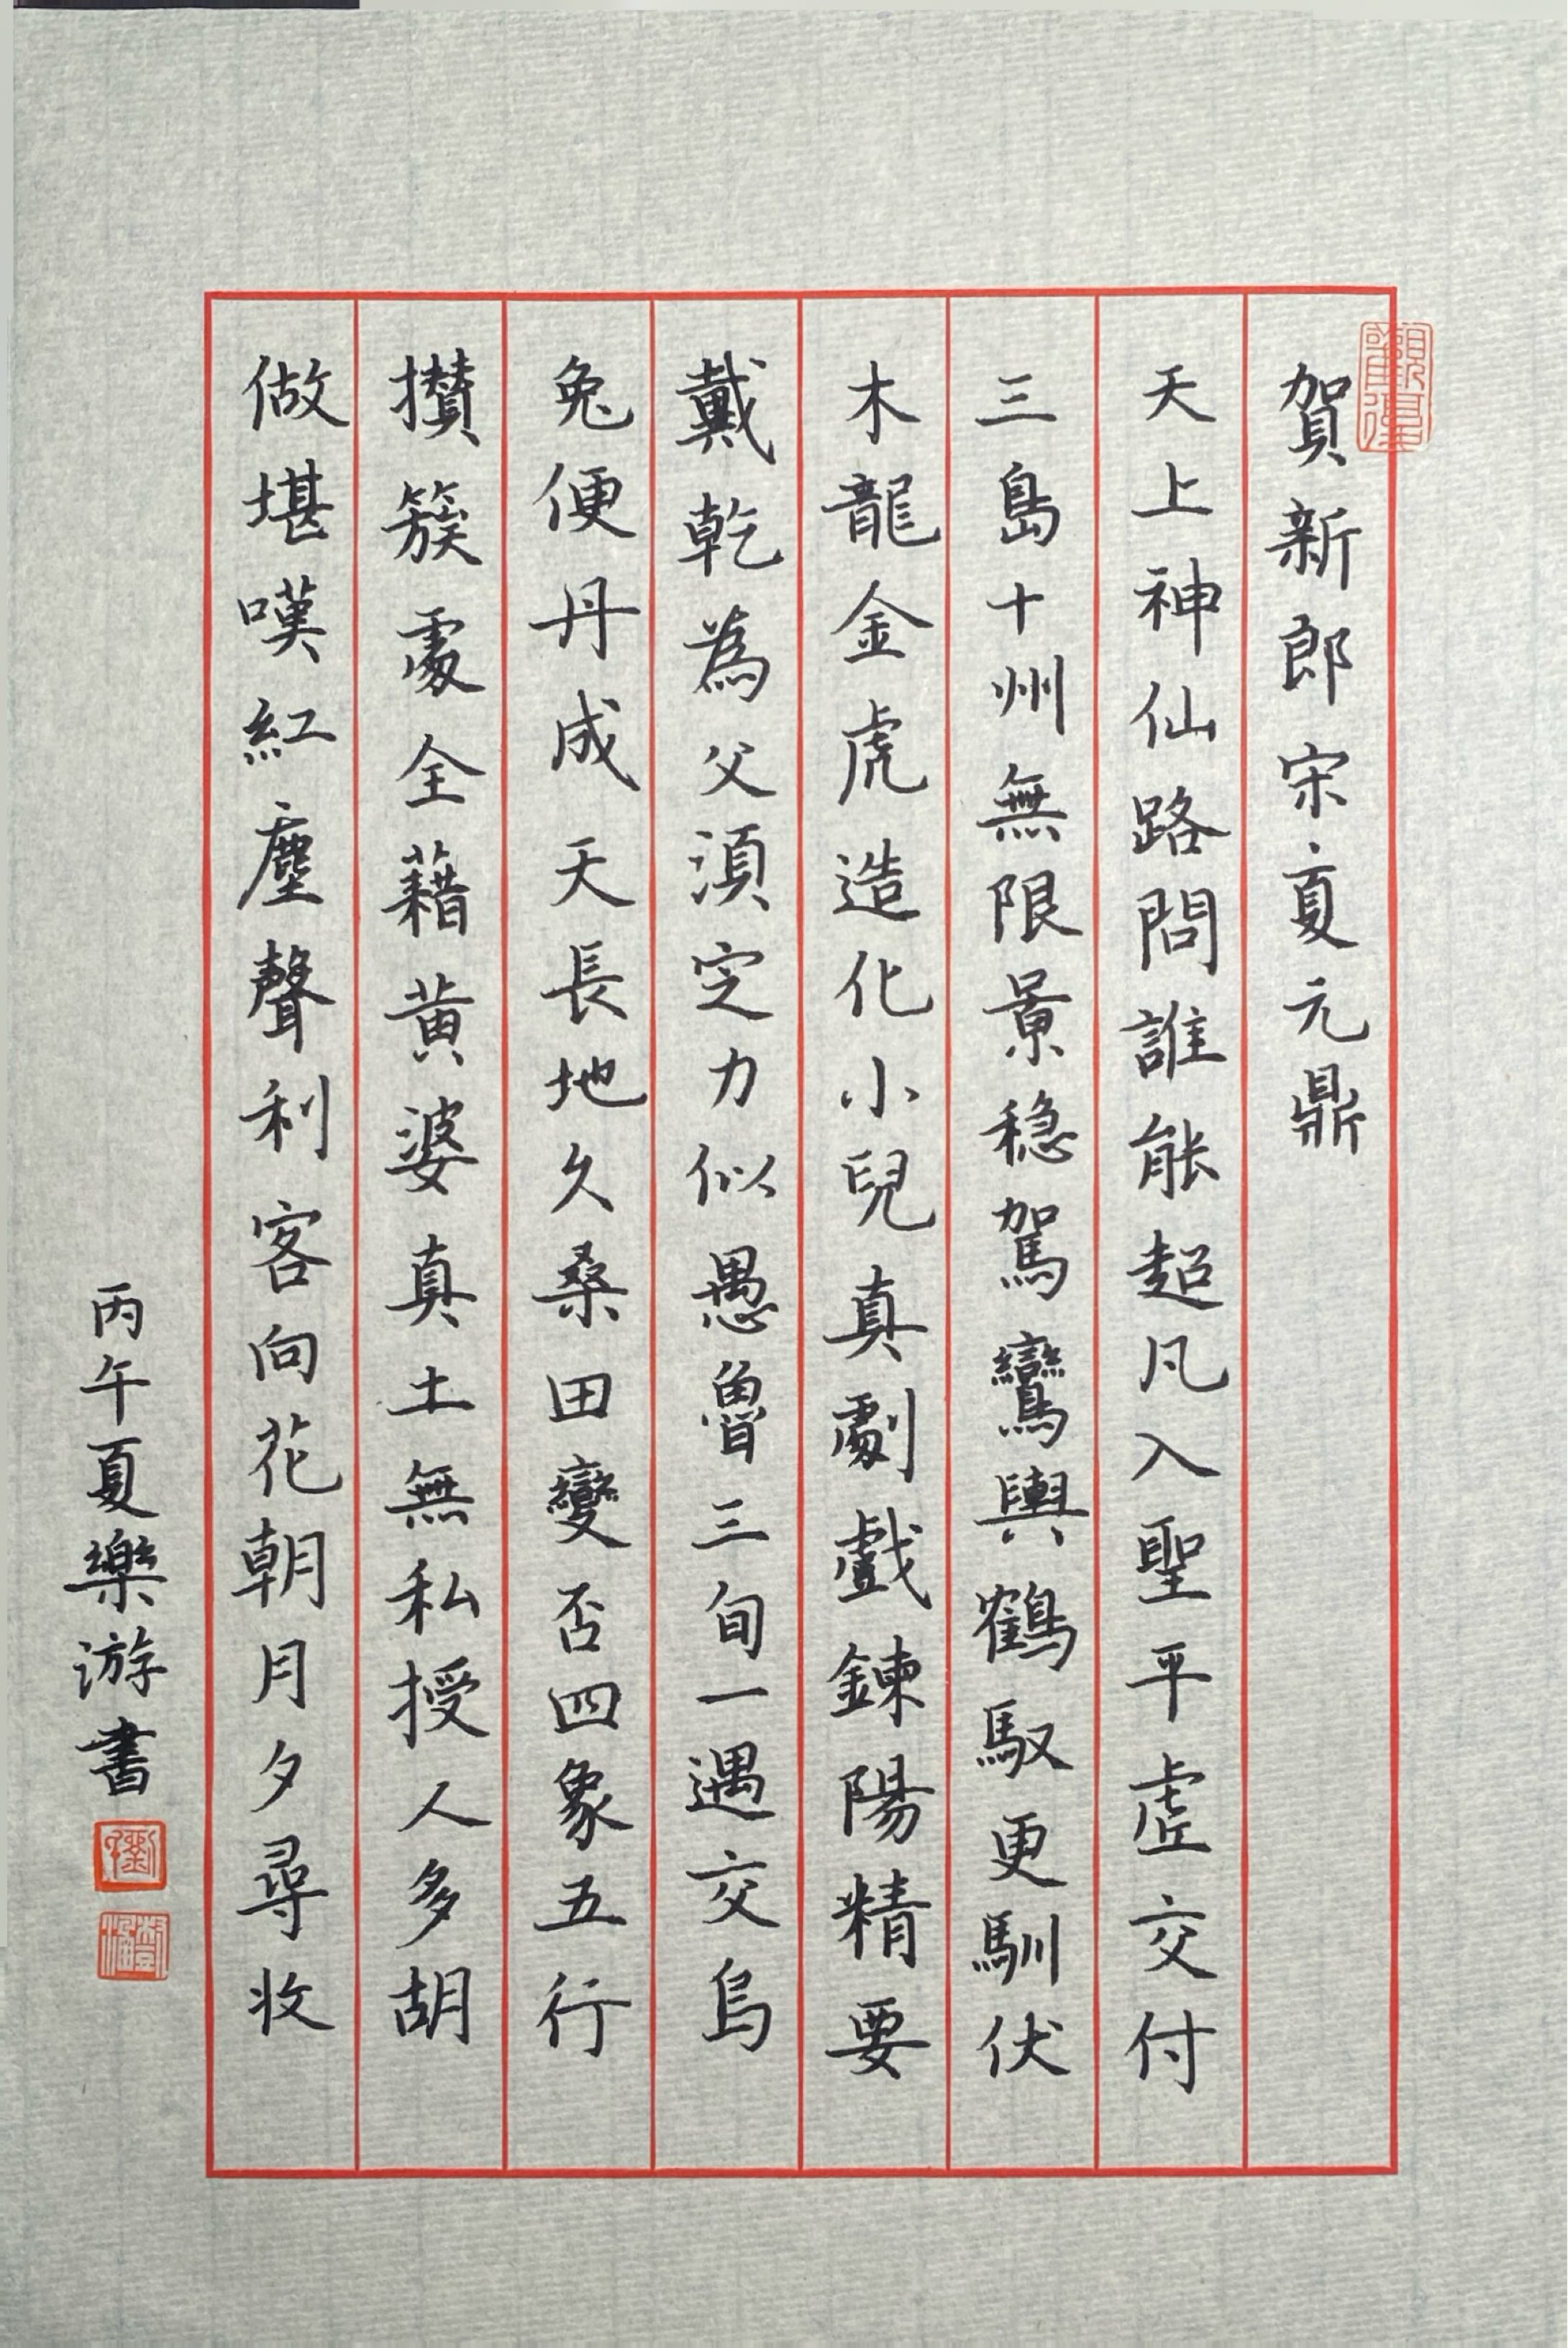 賀新郎宋夏元鼎
天上神仙路問誰能超凡入聖平虛交付
三島十州無限景穩駕鸞輿鶴馭更馴伏
木龍金虎造化小兒真劇戲鍊陽精要
戴乾為父須定力似愚魯三旬一遇交烏
兔便丹成天長地久桑田變否四象五行
攢簇處全藉黃婆真土無私授人多胡
做堪嘆紅塵聲利客向花朝月夕尋收
丙午夏樂游書